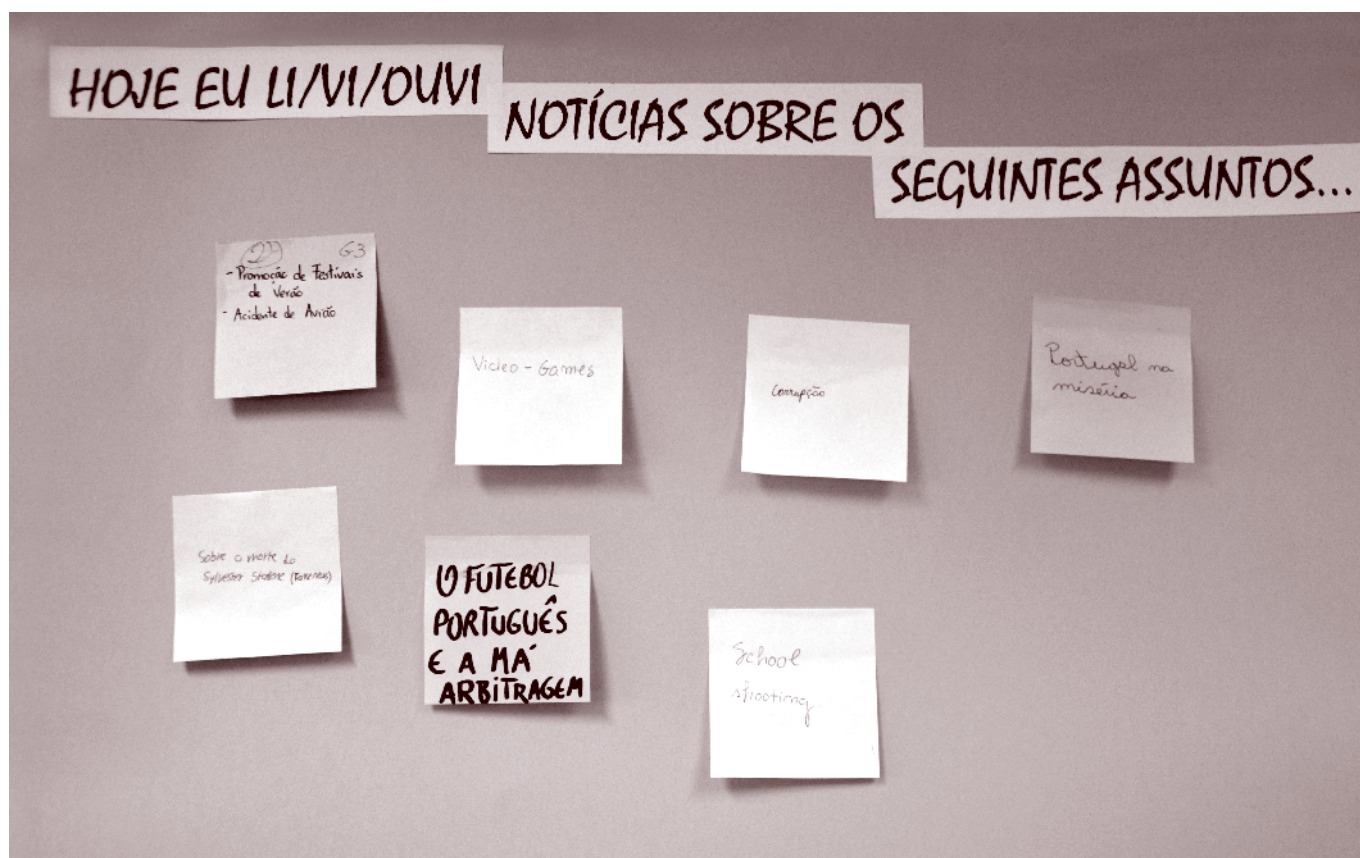 HOJE EU LI/VI/OUVI
NOTÍCIAS SOBRE OS
SEGUINTES ASSUNTOS...
27 G3
- Promoção de Festivais
de Verão
- Acidente de Avião
Video - Games
Corrupção
Portugal na
miséria
Sobre a morte do
Sylvester Stallone
O FUTEBOL
PORTUGUÊS
E A MÁ
ARBITRAGEM
School
shooting